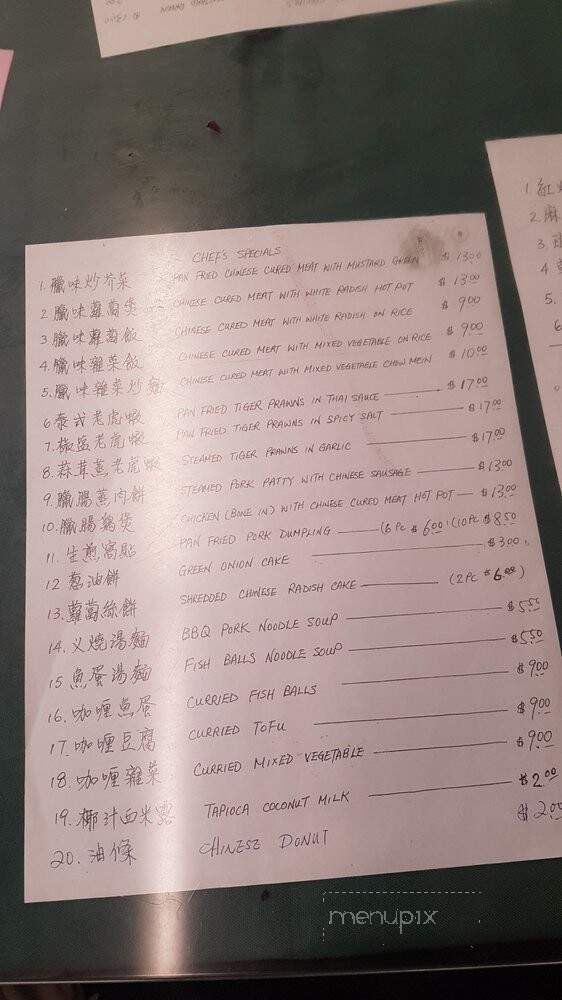 CHEF'S SPECIALS
1. 臘味炒芥菜 PAN FRIED CHINESE CURED MEAT WITH MUSTARD GREEN $ 13.00
2 臘味蘿蔔煲 CHINESE CURED MEAT WITH WHITE RADISH HOT POT $ 13.00
3 臘味蘿蔔飯 CHINESE CURED MEAT WITH WHITE RADISH ON RICE $ 9.00
4. 臘味雜菜飯 CHINESE CURED MEAT WITH MIXED VEGETABLE ON RICE $ 9.00
5. 臘味雜菜炒麵 CHINESE CURED MEAT WITH MIXED VEGETABLE CHOW MEIN $ 10.00
6 泰式老虎蝦 PAN FRIED TIGER PRAWNS IN THAI SAUCE $ 17.00
7. 椒鹽老虎蝦 PAN FRIED TIGER PRAWNS IN SPICY SALT $ 17.00
8. 蒜茸蒸老虎蝦 STEAMED TIGER PRAWNS IN GARLIC $ 17.00
9. 臘腸蒸肉餅 STEAMED PORK PATTY WITH CHINESE SAUSAGE $ 13.00
10. 臘腸鷄煲 CHICKEN (BONE IN) WITH CHINESE CURED MEAT HOT POT $ 13.00
11. 生煎窩貼 PAN FRIED PORK DUMPLING (6 PC $ 6.00) (10 PC $ 8.50
12 蔥油餅 GREEN ONION CAKE $ 3.00
13. 蘿蔔絲餅 SHREDDED CHINESE RADISH CAKE (2 PC $ 6.00)
14. 义燒湯麵 BBQ PORK NOODLE SOUP $ 5.50
15 魚蛋湯麵 FISH BALLS NOODLE SOUP $ 5.50
16. 咖喱魚蛋 CURRIED FISH BALLS $ 9.00
17. 咖喱豆腐 CURRIED TOFU $ 9.00
18. 咖喱雜菜 CURRIED MIXED VEGETABLE $ 9.00
19. 椰汁西米露 TAPIOCA COCONUT MILK $ 2.00
20. 油條 CHINESE DONUT $ 2.00
1 紅
2. 麻
3.
4
5.
6
menupix